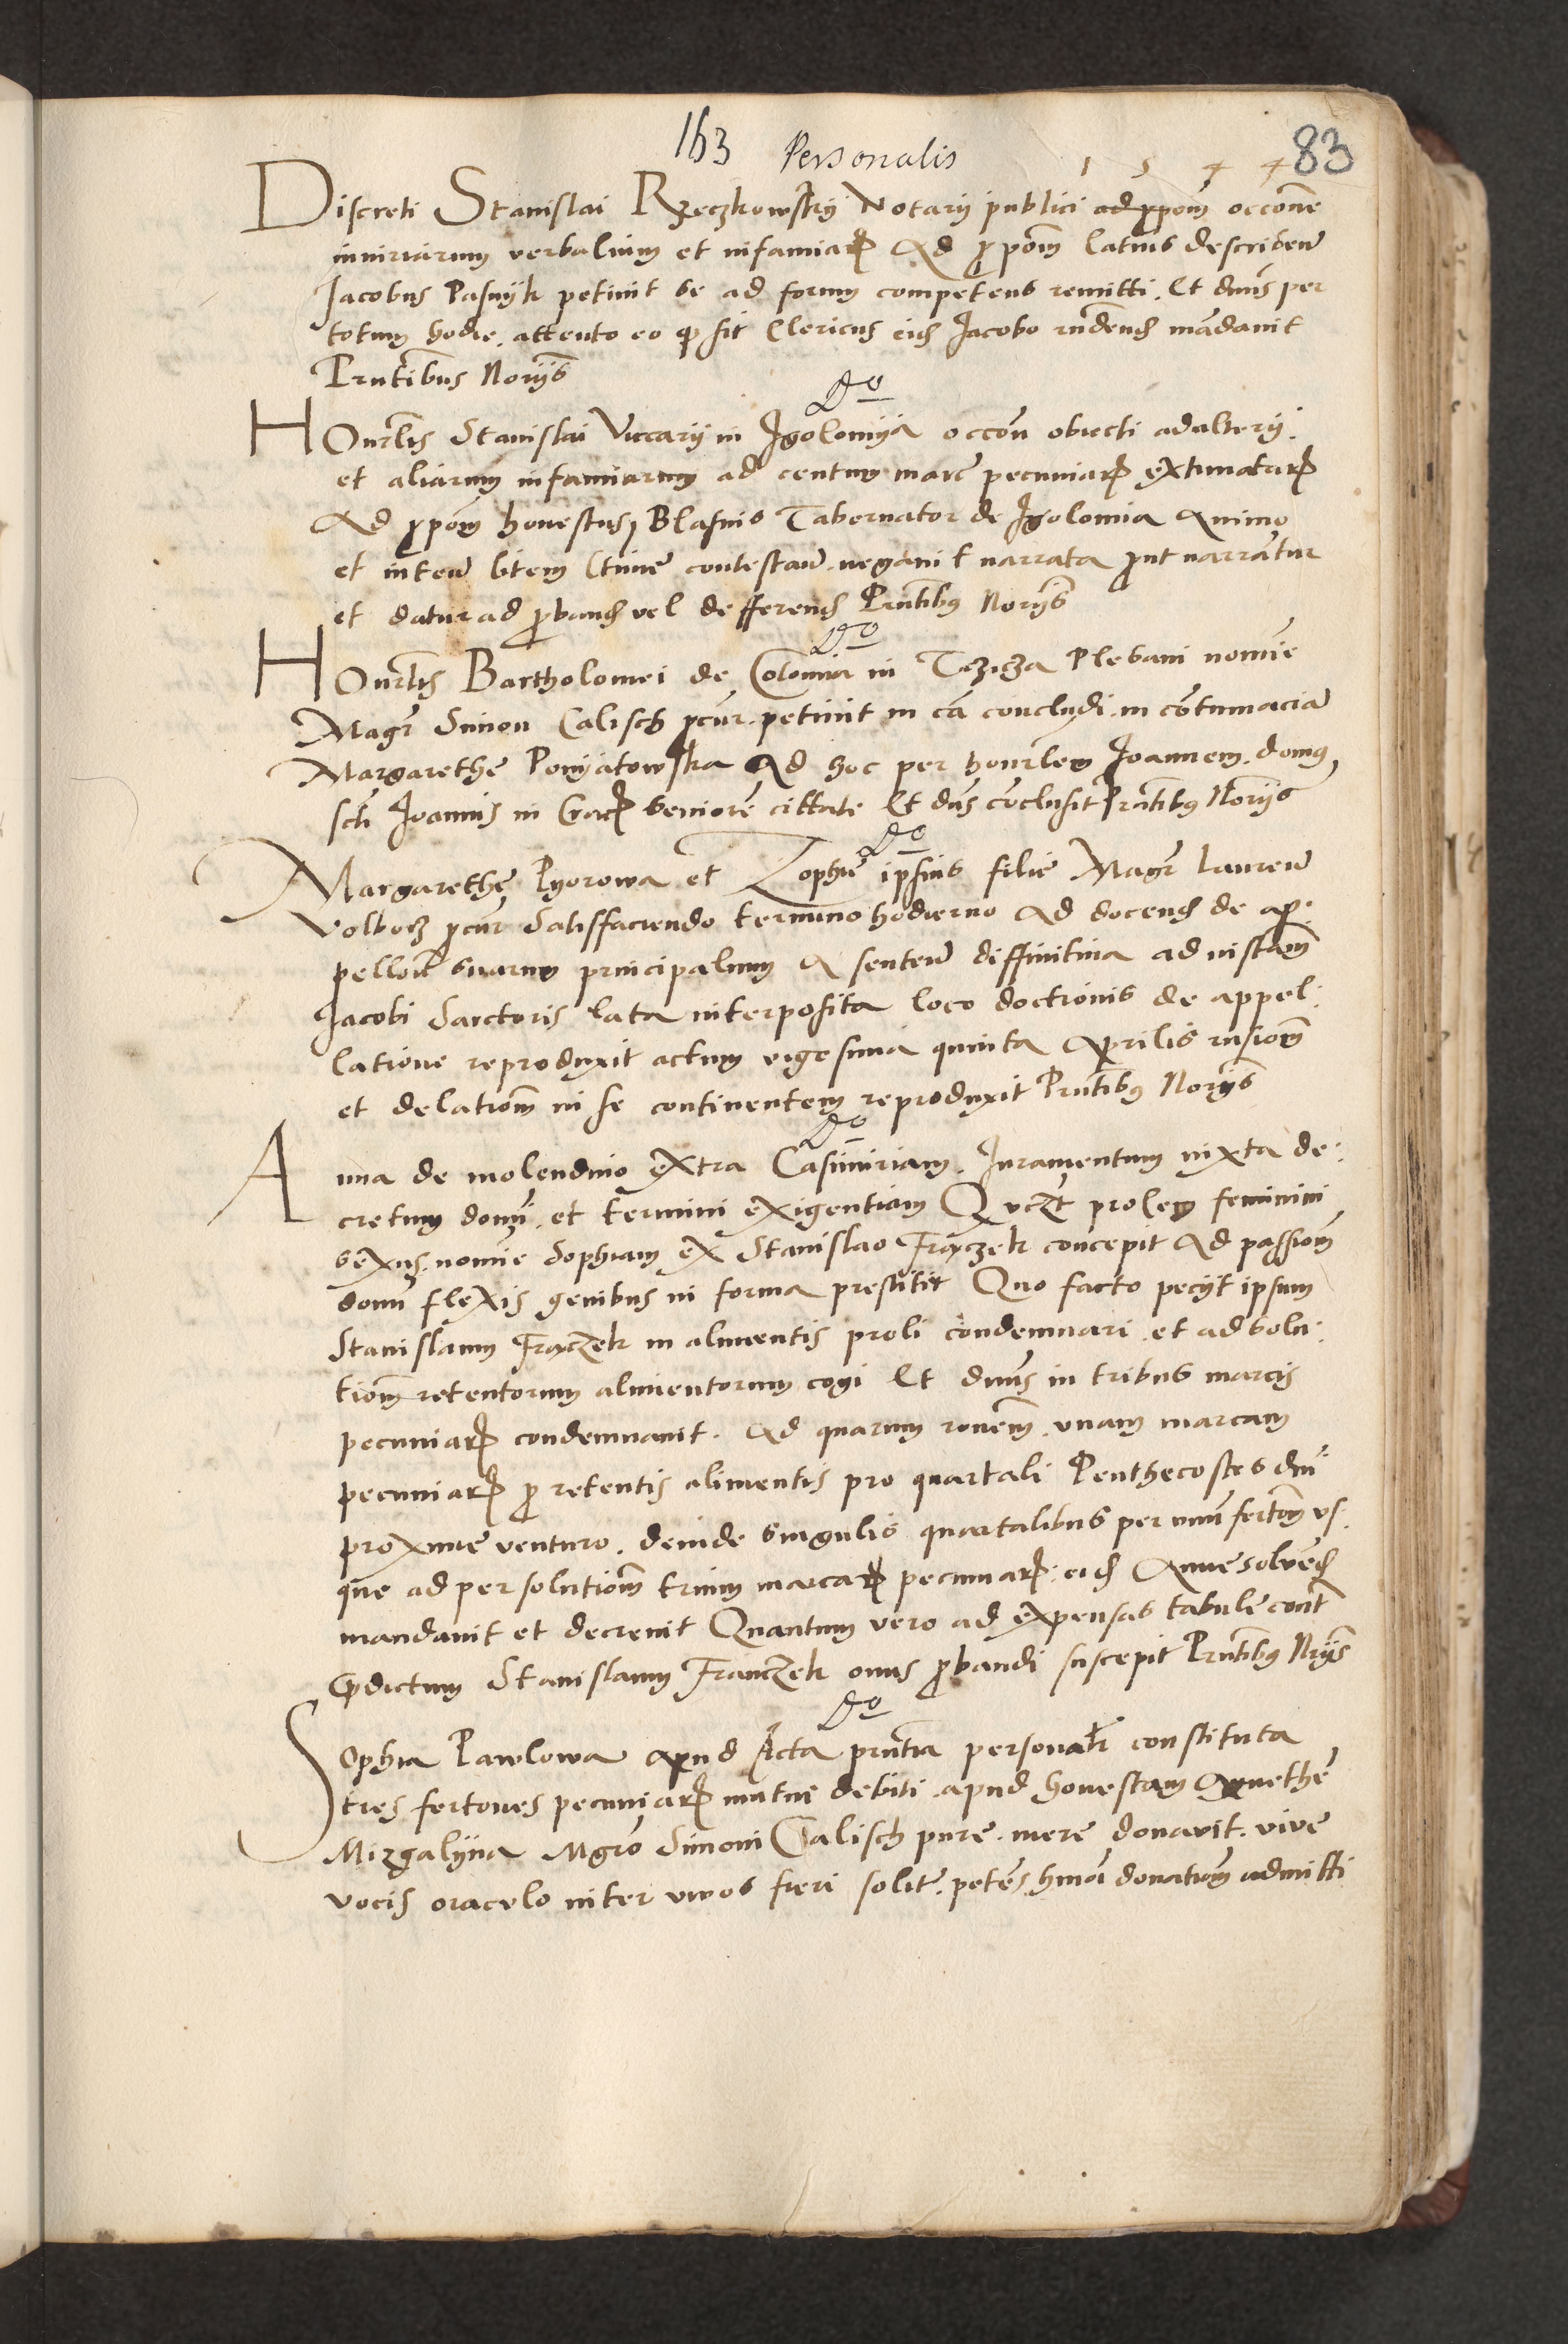 163 Personalis 1 5 4 4 83
Discreti Stanislai Rzeczkowskÿ Notarÿ publici ad ppom̄ occōne
iniuriarum verbalium et infamiarꝝ Ad ꝓpoēm latius describeñ
Jacobus Pasnÿk petiuit se ad forum competens remitti. Et dnūs per
totum hodie. attento eo ꝙ sit Clericus eid Jacobo rñdend mādauit
Pnt̄ibus Norÿs
Do
HOnrl̄is Stanislai Viccarÿ in Igolomÿa occōn obiecti adulterÿ.
et aliarum infamiarum ad centum marc̄ pecuniarꝝ extimatarꝝ
Ad ꝓpōem honestus Blasius Tabernator de Igolomia Animo
et inteñ litem ltiuie contestañ. negauit narrata prout narrantur
et datur ad ꝓband vel defferend Pnt̄ibus Norÿs
Do
HOnrl̄is Bartholomei de Colonia in Plebani nomīe
Magr̄ Simon Calisch ꝓcur̄. petiuit in cā concludi in contumaciā
Margarethe Ponÿatowska Ad hoc per honrlēm Joannem. domꝰ
scti Joannis in Cracꝝ seniorē cittate Et dn̄s cōclusit Pn̄tibus Norÿs
Do
Margarethe Pyorowa et Zophie ipsius filie Magr̄ Laureñ
Volborz ꝓcur̄ Satisfaciendo termino hodierno Ad docend de ap.
pellōe suarum principalium A senteñ diffinitiua ad instam̄
Jacobi Sarctoris lata interposita loco doctionis de appel.
latione reproduxit actum vigesima quinta Aprilis
et delatiom̄ in se continentem reproduxit Pn̄tibus Norÿs
Do
Anna de molendino extra Casimiriam. Juramentum iuxta de.
cretum domī. et termini exigentiam Qvczt prolem feminini
sexus. nomīe Sophiam ex Stanislao Frączek concepit Ad passiom̄
domī flexis genibus in forma prestitit Quo facto pecijt ipsum
Stanislaum Frączek in alimentis proli condemnari. et ad solu.
tiom̄ retentorum alimentorum cogi Et dnūs in tribus marcis
pecuniarꝝ condemnauit. Ad quarum ronēm. vnam marcam
pecuniarꝝ ꝓ retentis alimentis pro quartali Penthecostes dnī
proxime venturo. deinde singulis quartalibus per vnū fertōm vs.
que ad persolutiom̄ trium marcarꝝ pecuniarꝝ. eid Anne solvend
mandauit et decreuit Quantum vero ad expensas tabule cont̄
Pdictum Stanislaum Franczek onus ꝓbandi suscepit Pn̄tibus Nrÿs
Do
Sophia Pawlowa Apud Acta pn̄tia personalr̄ constituta
tres fertones pecuniarꝝ mutui debiti apud honestam Agnethe
Mizgalÿna Mgrō Simoni Calisch pure. mere donavit. vive
vocis oraculo inter vivos fieri solit̄. petens hmōi donatiom̄ admitti